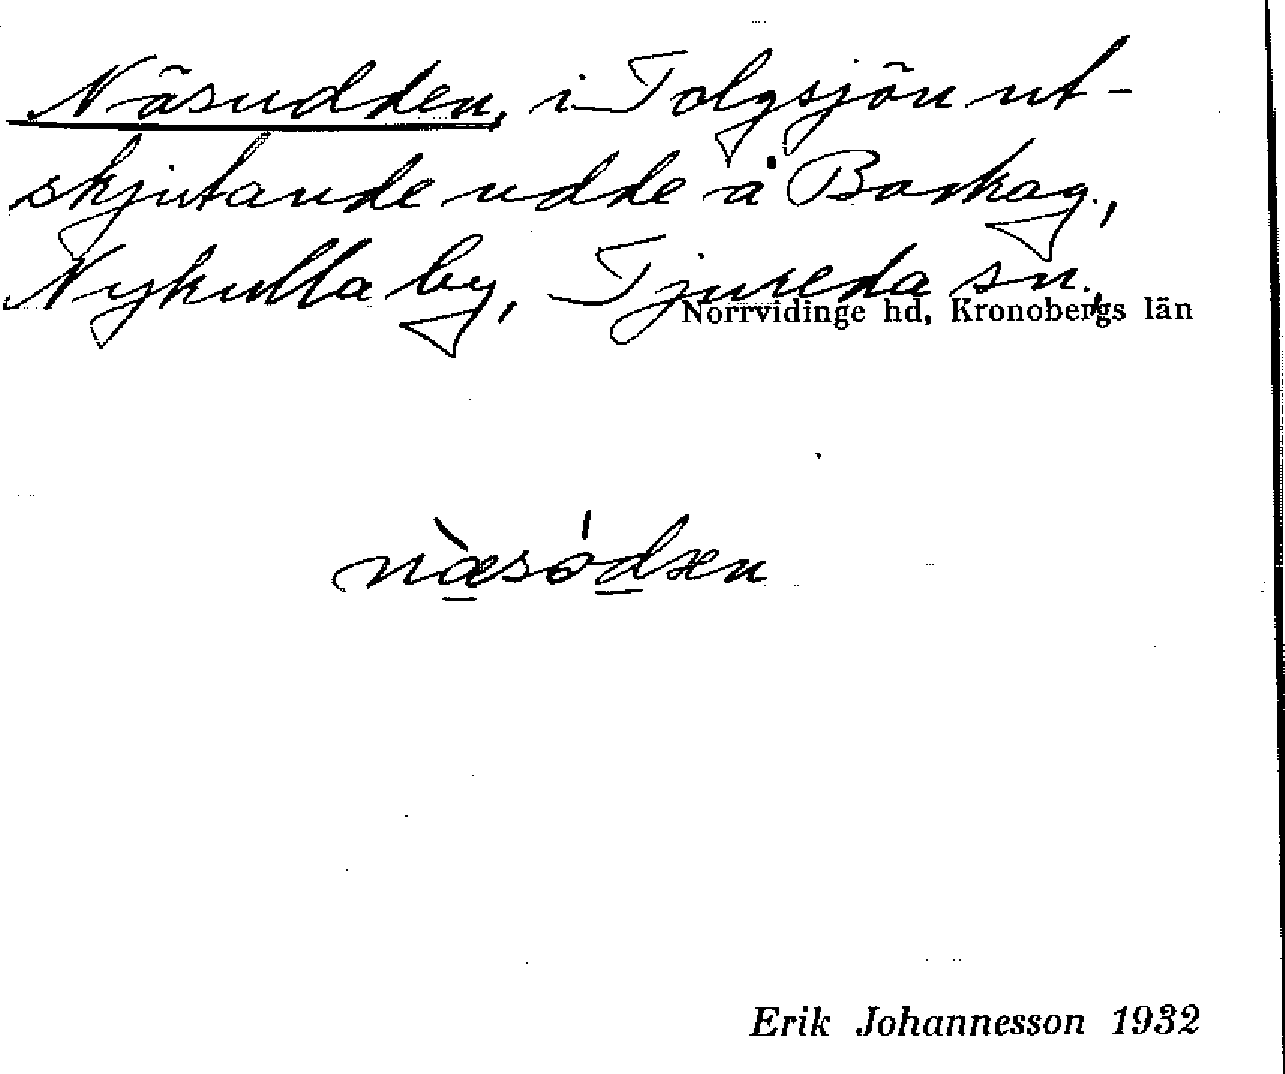 Näsudden, i Tolgsjön ut-
skjutande udde å Boskag.,
Nykulla by, Tjureda sn.,
Norrvidinge hd, Kronobergs län
næ̀sódæn
Erik Johannesson 1932